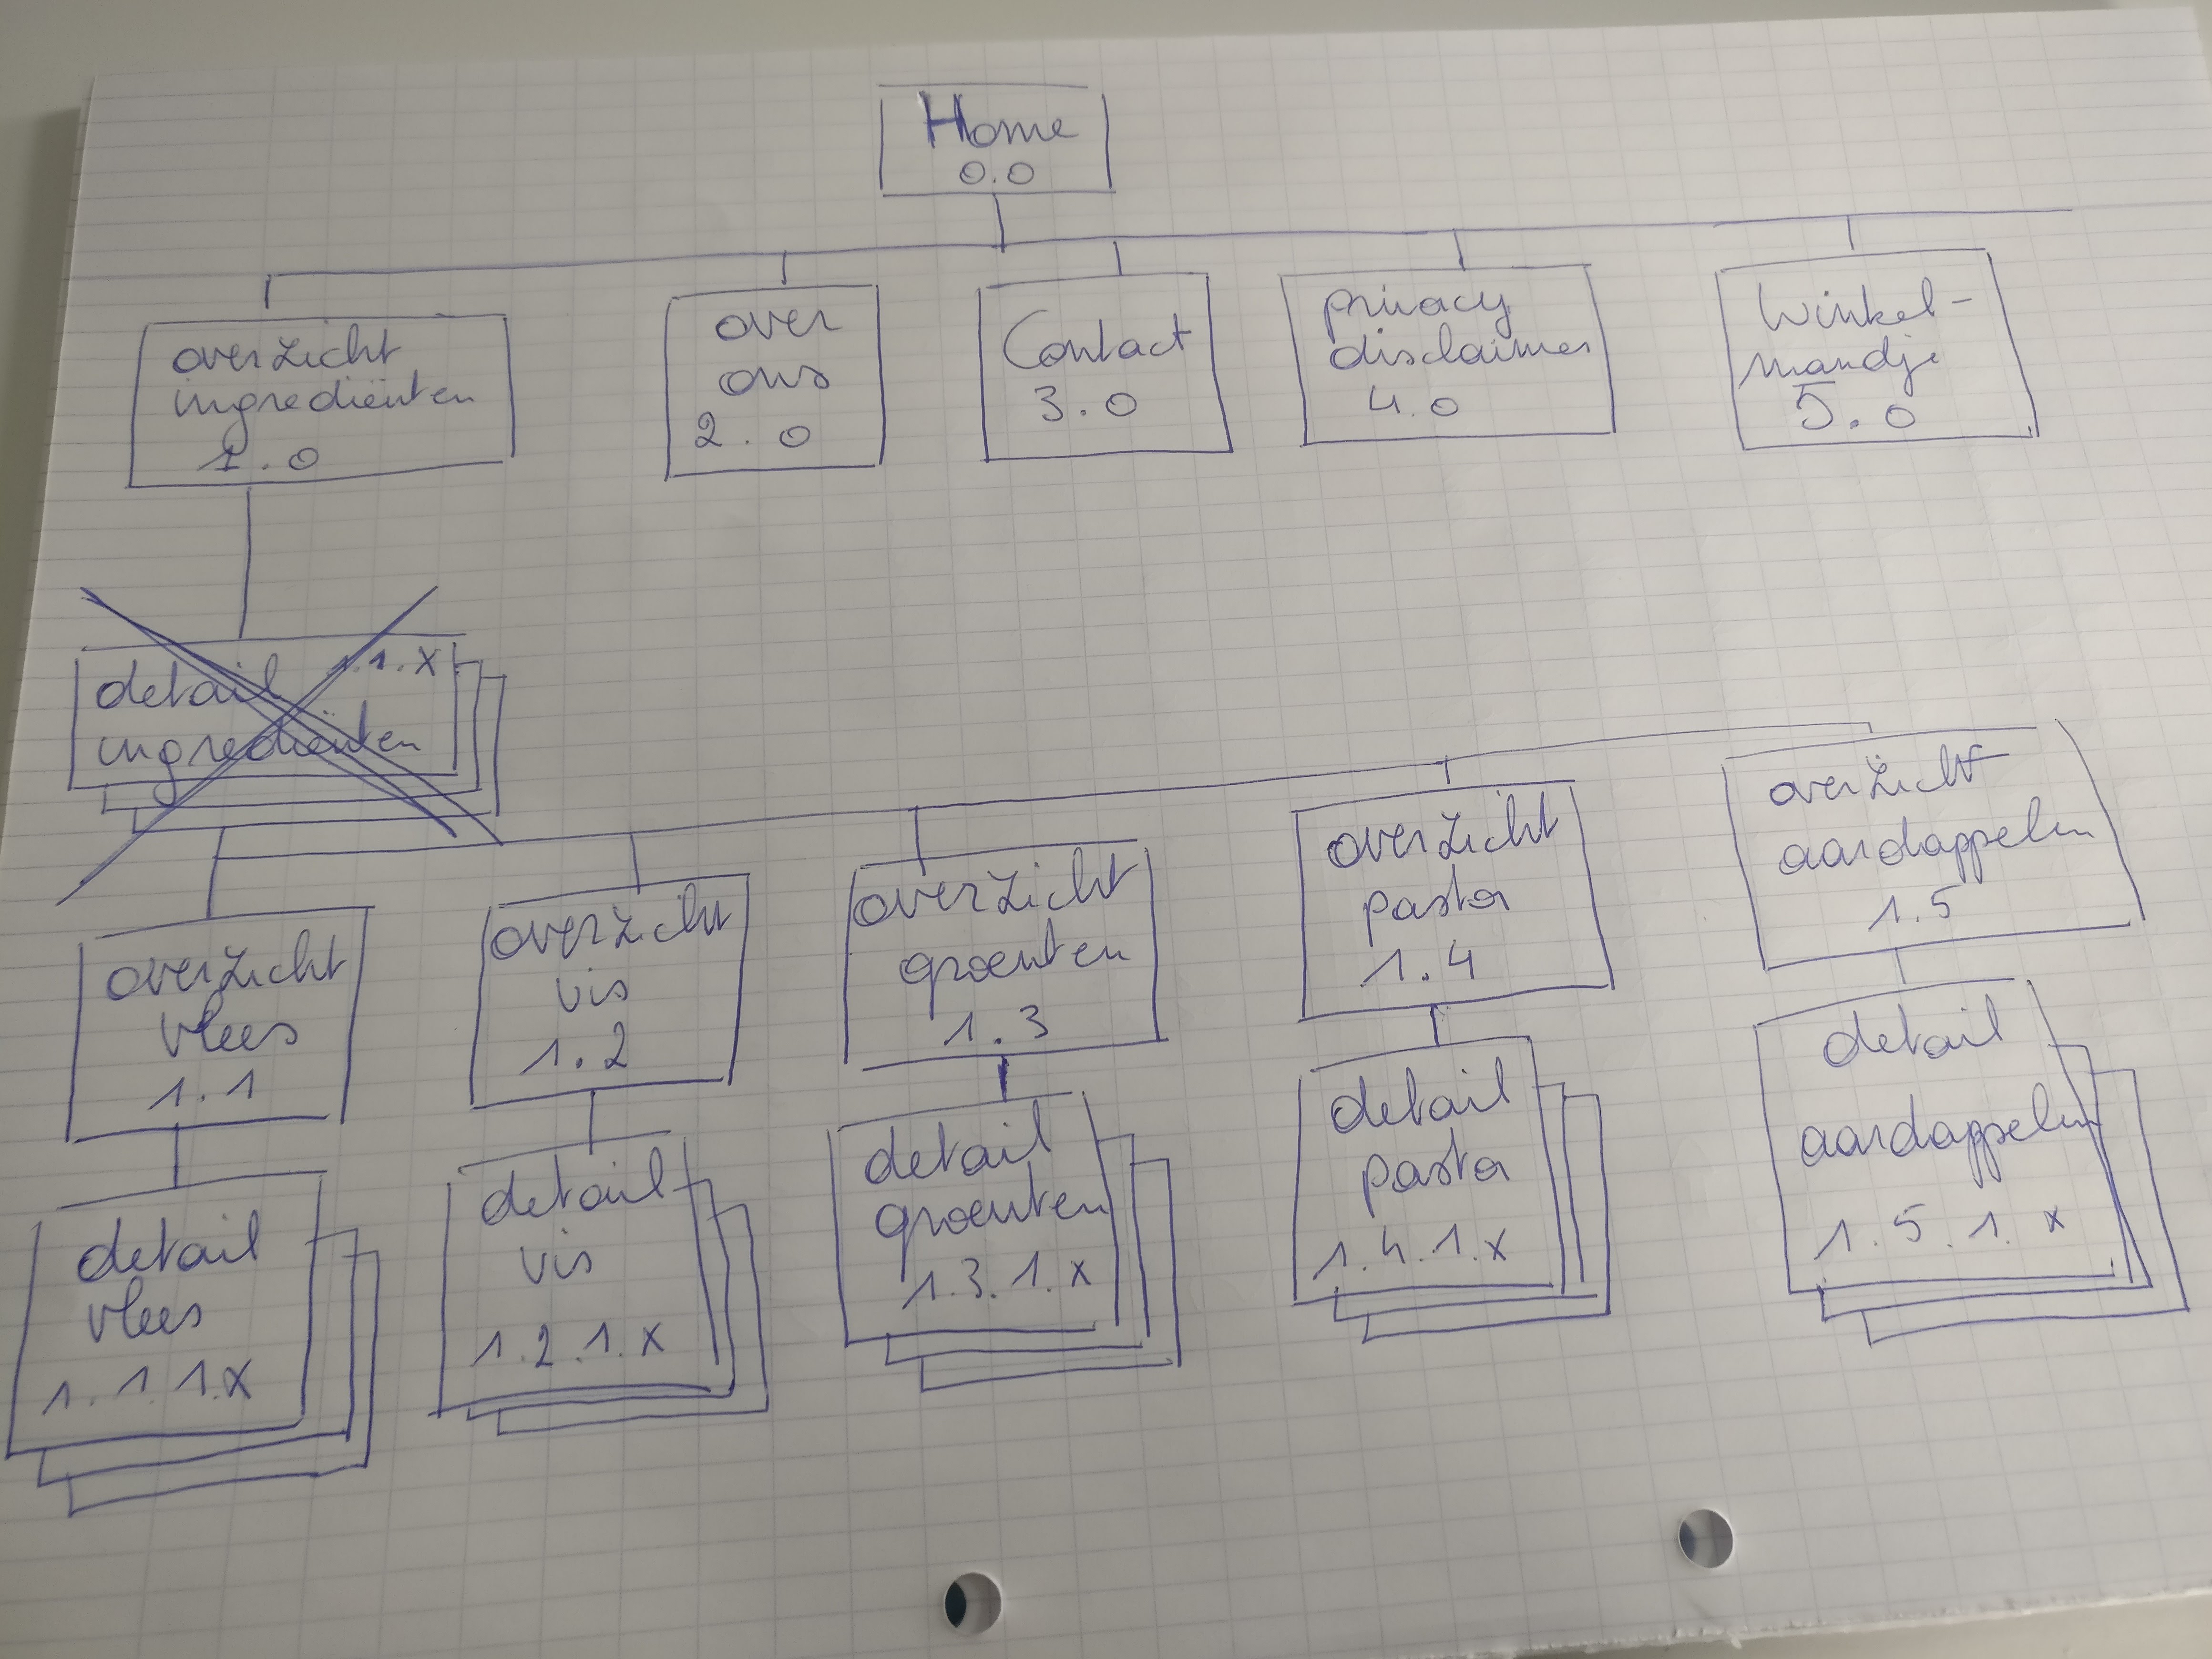 Home
0.0
overzicht
ingrediënten
1.0
over
ons
2.0
Contact
3.0
privacy
disclaimer
4.0
Winkel-
mandje
5.0
detail 1.1.x
ingrediënten
overzicht
vlees
1.1
overzicht
vis
1.2
overzicht
groenten
1.3
overzicht
pasta
1.4
overzicht
aardappelen
1.5
detail
vlees
1.1.1.x
detail
vis
1.2.1.x
detail
groenten
1.3.1.x
detail
pasta
1.4.1.x
detail
aardappelen
1.5.1.x